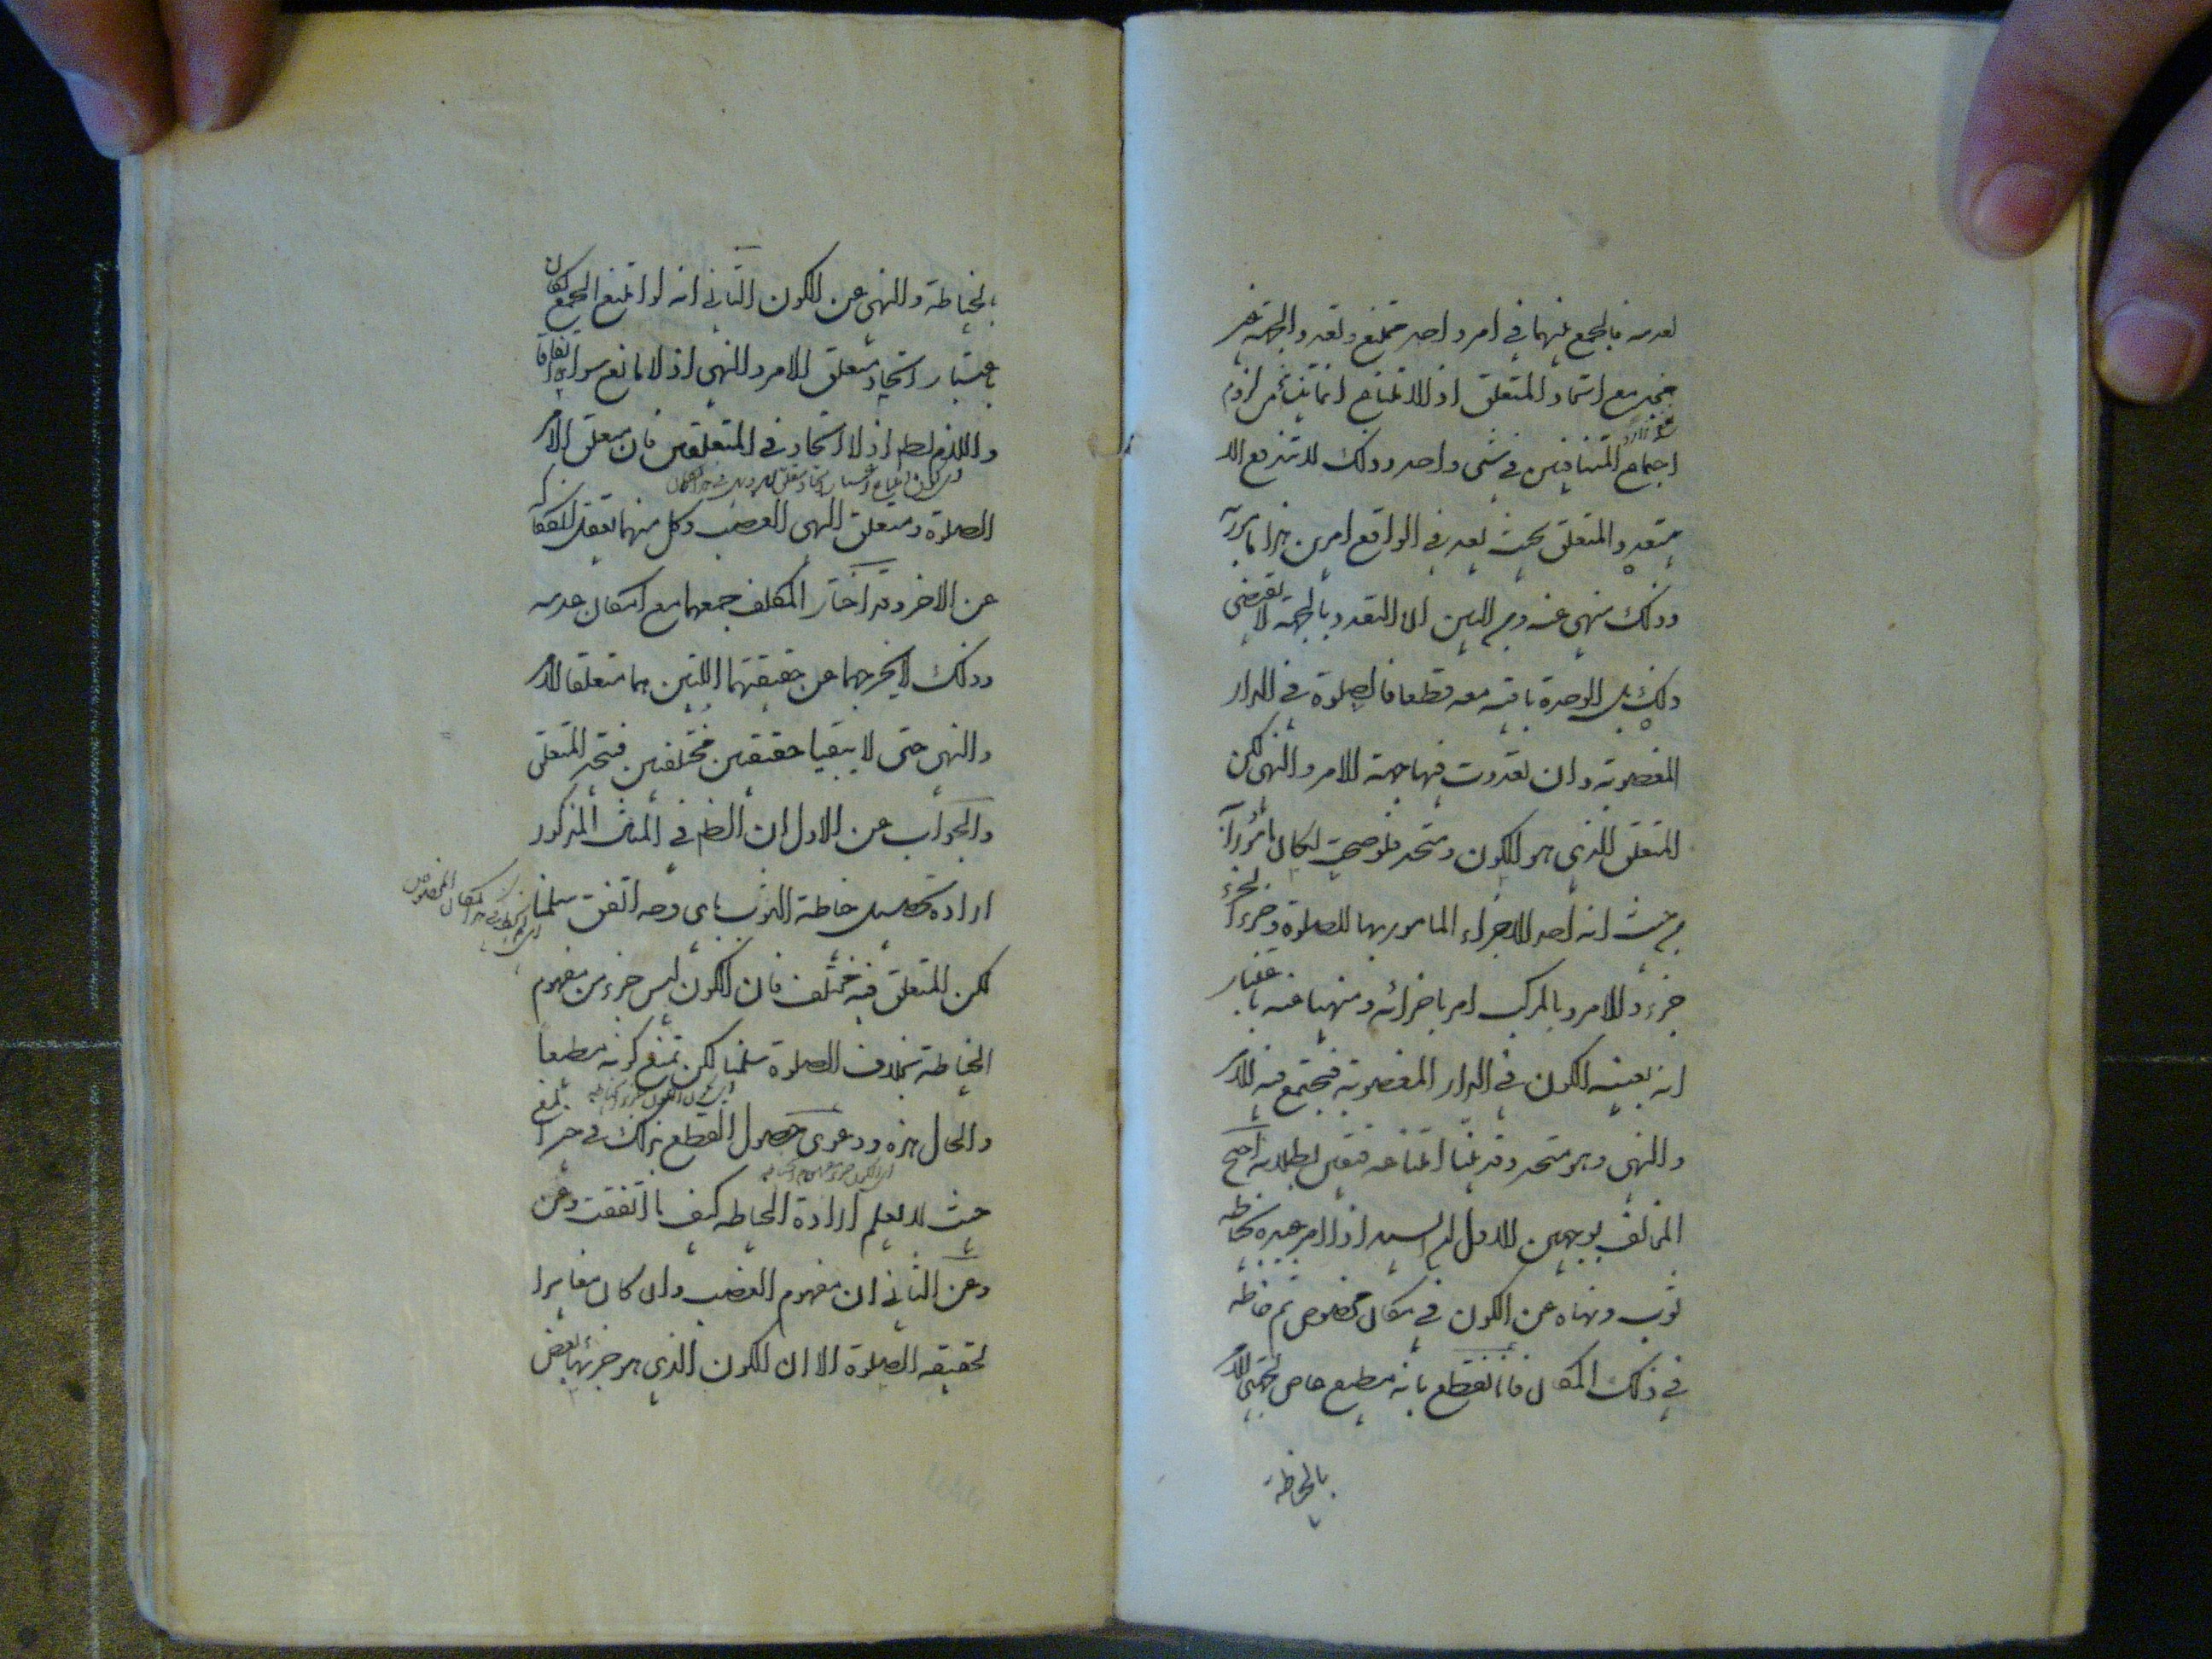 لعدمه فالجمع بينهما في امر واحد ممتنع وتعدد الجهة غير
مجد مع اتحاد المتعلق اذ الامتناع انما ينشأ من لزوم
اجتماع المتنافيين في شئ واحد وذلك لا يندفع الا
بتعدد المتعلق بحيث يعد في الواقع امرين هذا مامور به
وذلك منهى عنه ومن البين ان التعدد بالجهة لا يقتضى
ذلك بل الوحدة باقية معه قطعا فالصلوة في الدار
المغصوبة وان تعددت فيها جهة الامر والنهى لكن
المتعلق الذي هو الكون متحد فلو صحت لكان مامورا به
من حيث انه احد الاجزاء المامور بها للصلوة وجزء الجزء
جزء والامر بالمركب امر باجزائه ومنهيا عنه باعتبار
انه بعينه الكون في الدار المغصوبة فيجتمع فيه الامر
والنهى وهو متحد وقد بينا امتناعه فتعين بطلانه احتج
المخالف بوجهين الاول ان السيد اذا امر عبده بخياطة
ثوب ونهاه عن الكون في مكان مخصوص ثم خاطه
في ذلك المكان فانا نقطع بانه مطيع عاص لجهتى الامر
بالخياطة
بالخياطة والنهى عن الكون الثاني انه لو امتنع الجمع لكان
باعتبار اتحاد متعلق الامر والنهى اذ لا مانع سواه اتفاقا
واللازم بطم اذ لا اتحاد في المتعلقين فان متعلق الامر
الصلوة ومتعلق النهى الغصب وكل منهما يتعقل انفكاكه
عن الاخر وقد اختار المكلف جمعهما مع امكان عدمه
وذلك لا يخرجهما عن حقيقتهما اللتين هما متعلقا الامر
والنهى حتى لا يبقيا حقيقتين مختلفتين فيتحد المتعلق
والجواب عن الاول ان الظم في المثال المذكور
ارادة تحصيل خياطة الثوب باى وجه اتفق سلمنا
لكن المتعلق فيه مختلف فان الكون ليس جزء من مفهوم
الخياطة بخلاف الصلوة سلمنا لكن نمنع كونه مطيعا
والحال هذه ودعوى حصول القطع بذلك في حيز المنع
حيث لا يعلم ارادة الخياطه كيف ما اتفقت وعن
وعن الثاني ان مفهوم الغصب وان كان مغايرا
لحقيقه الصلوة الا ان الكون الذي هو جزئها بعض